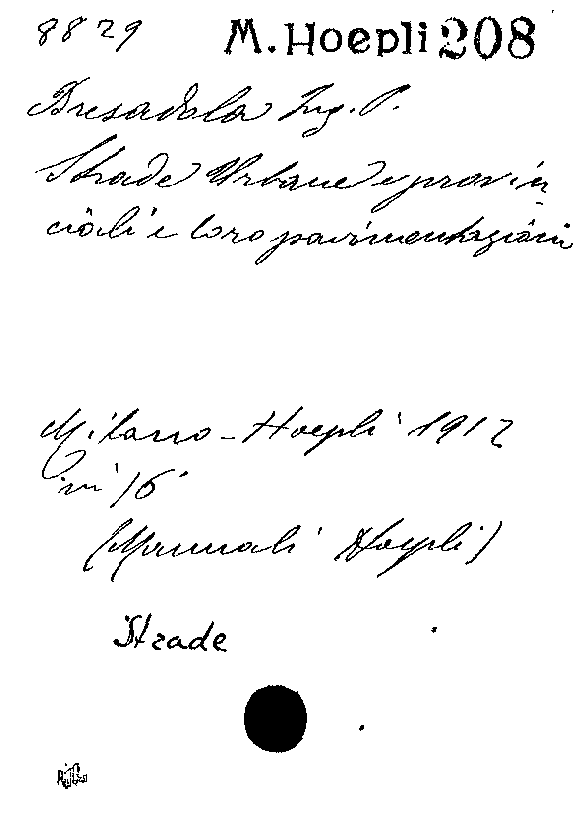 8829 M. Hoepli 208
Bresadola Ing. P.
Strade Urbane e provin
ciali e loro pavimentazioni
Milano - Hoepli 1912
in 16°
(Manuali Hoepli)
Strade